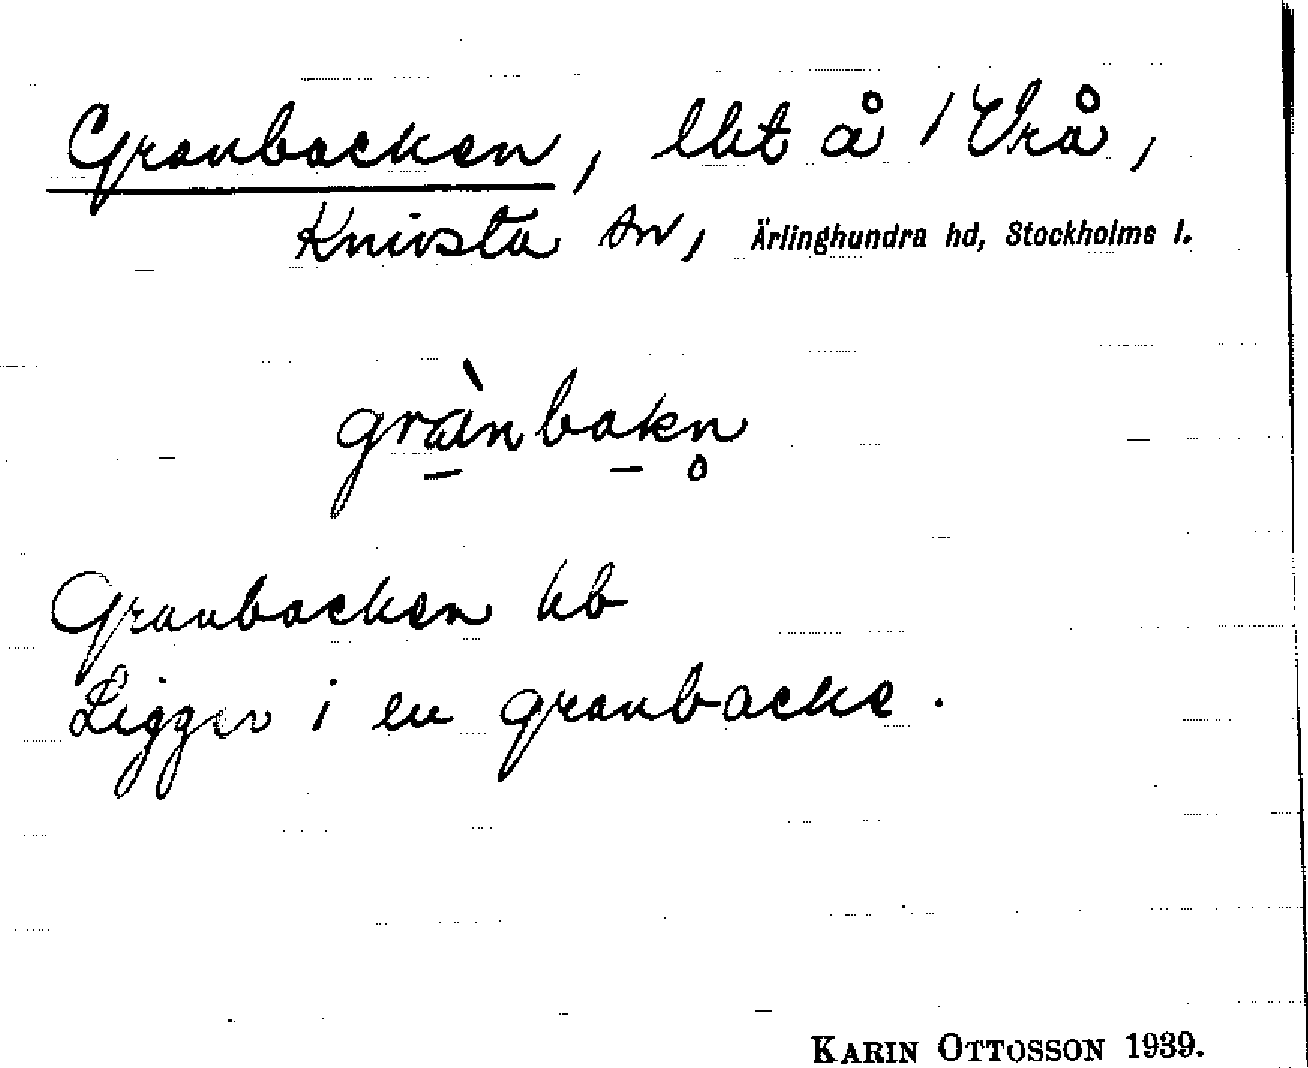 Granbacken, lht å 1 Vrå,
Knivsta sn, Ärlinghundra hd, Stockholms l.
grànbakn̥
Granbacken hb
Ligger i en granbacke.
KARIN OTTOSSON 1939.